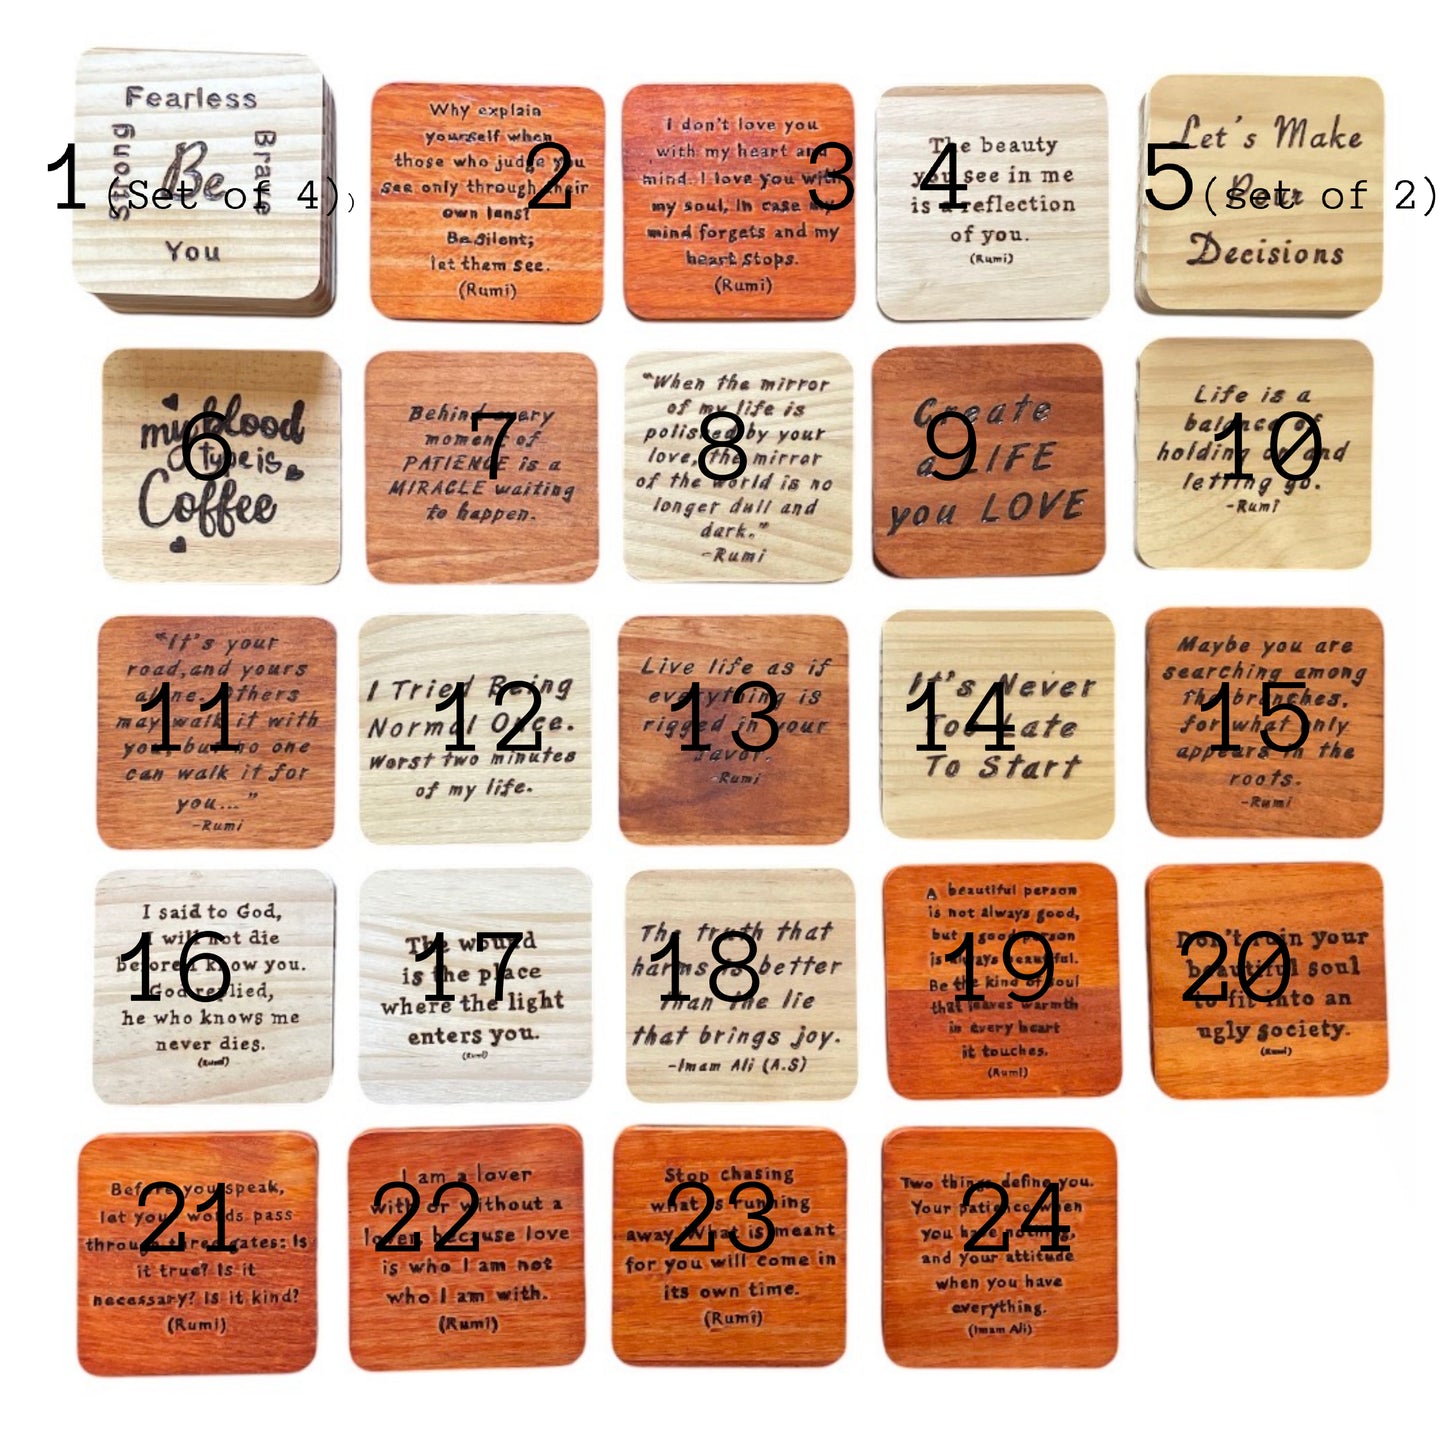 Fearless
Strong
Be
Brave
You
1 (Set of 4))
Why explain
yourself when
those who judge you
see only through their
own lens?
Be silent;
let them see.
(Rumi)
2
I don't love you
with my heart and
mind. I love you with
my soul, in case my
mind forgets and my
heart stops.
(Rumi)
3
The beauty
you see in me
is a reflection
of you.
(Rumi)
4
Let's Make
Pour
Decisions
5 (set of 2)
my blood
type is
Coffee
6
Behind every
moment of
PATIENCE is a
MIRACLE waiting
to happen.
7
"When the mirror
of my life is
polished by your
love, the mirror
of the world is no
longer dull and
dark."
-Rumi
8
Create
a LIFE
you LOVE
9
Life is a
balance of
holding on and
letting go.
-Rumi
10
"It's your
road,and yours
alone. Others
may walk it with
you, but no one
can walk it for
you..."
-Rumi
11
I Tried Being
Normal Once.
Worst two minutes
of my life.
12
Live life as if
everything is
rigged in your
favor.
-Rumi
13
It's Never
Too Late
To Start
14
Maybe you are
searching among
the branches,
for what only
appears in the
roots.
-Rumi
15
I said to God,
I will not die
before I know you.
God replied,
he who knows me
never dies.
(Rumi)
16
The wound
is the place
where the light
enters you.
(Rumi)
17
The truth that
harms is better
than the lie
that brings joy.
-Imam Ali (A.S)
18
A beautiful person
is not always good,
but a good person
is always beautiful.
Be the kind of soul
that leaves warmth
in every heart
it touches.
(Rumi)
19
Don't ruin your
beautiful soul
to fit into an
ugly society.
(Rumi)
20
Before you speak,
let your words pass
through three gates: Is
it true? Is it
necessary? Is it kind?
(Rumi)
21
I am a lover
with or without a
lover, because love
is who I am not
who I am with.
(Rumi)
22
Stop chasing
what is running
away. What is meant
for you will come in
its own time.
(Rumi)
23
Two things define you.
Your patience when
you have nothing,
and your attitude
when you have
everything.
(Imam Ali)
24